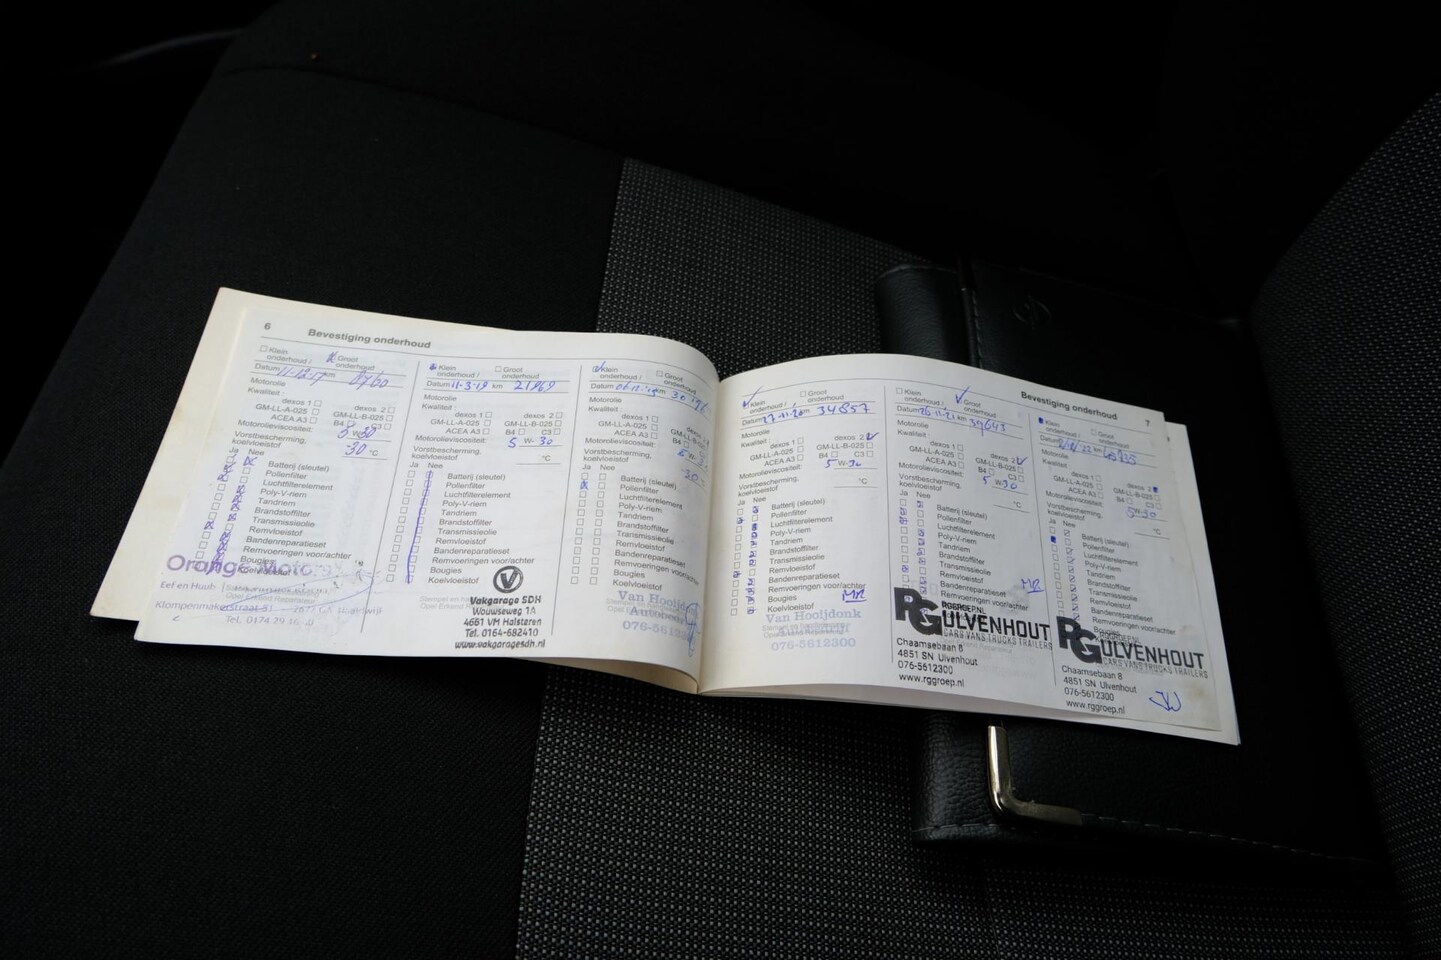 6
Bevestiging onderhoud
Klein onderhoud /
Groot onderhoud
Datum 11-12-17 km
Motorolie
Kwaliteit :
dexos 1
dexos 2
GM-LL-A-025
GM-LL-B-025
ACEA A3
B4
C3
Motorolieviscositeit:
5 W-30
Vorstbescherming,
koelvloeistof
-30 °C
Ja Nee
Batterij (sleutel)
Pollenfilter
Luchtfilterelement
Poly-V-riem
Tandriem
Brandstoffilter
Transmissieolie
Remvloeistof
Bandenreparatieset
Remvoeringen voor/achter
Bougies
Koelvloeistof
Eef en Huub
Tel. 0174 29 16
Klein onderhoud /
Groot onderhoud
Datum 11-3-19 km
Motorolie
Kwaliteit :
dexos 1
dexos 2
GM-LL-A-025
GM-LL-B-025
ACEA A3
B4
C3
Motorolieviscositeit:
5 W-30
Vorstbescherming,
koelvloeistof
°C
Ja Nee
Batterij (sleutel)
Pollenfilter
Luchtfilterelement
Poly-V-riem
Tandriem
Brandstoffilter
Transmissieolie
Remvloeistof
Bandenreparatieset
Remvoeringen voor/achter
Bougies
Koelvloeistof
Vakgarage SDH
Wouwseweg 1A
4661 VM Halsteren
Tel. 0164-682410
www.vakgaragesdh.nl
Klein onderhoud /
Groot onderhoud
Datum
km
Motorolie
Kwaliteit :
dexos 1
GM-LL-A-025
ACEA A3
B4
Motorolieviscositeit:
Vorstbescherming,
koelvloeistof
Ja Nee
Batterij (sleutel)
Pollenfilter
Luchtfilterelement
Poly-V-riem
Tandriem
Brandstoffilter
Transmissieolie
Remvloeistof
Bandenreparatieset
Remvoeringen voor/achter
Bougies
Koelvloeistof
Van Hooijdonk
076-5612300
Bevestiging onderhoud
7
Klein onderhoud /
Groot onderhoud
Datum 27-11-20 km 34857
Motorolie
Kwaliteit :
dexos 1
dexos 2
GM-LL-A-025
GM-LL-B-025
ACEA A3
B4
C3
Motorolieviscositeit:
5 W-30
Vorstbescherming,
koelvloeistof
°C
Ja Nee
Batterij (sleutel)
Pollenfilter
Luchtfilterelement
Poly-V-riem
Tandriem
Brandstoffilter
Transmissieolie
Remvloeistof
Bandenreparatieset
Remvoeringen voor/achter
Bougies
Koelvloeistof
MR
Van Hooijdonk
076-5612300
Klein onderhoud /
Groot onderhoud
Datum 26-11-21 km 39647
Motorolie
Kwaliteit :
dexos 1
dexos 2
GM-LL-A-025
GM-LL-B-025
ACEA A3
B4
C3
Motorolieviscositeit:
5 W-30
Vorstbescherming,
koelvloeistof
°C
Ja Nee
Batterij (sleutel)
Pollenfilter
Luchtfilterelement
Poly-V-riem
Tandriem
Brandstoffilter
Transmissieolie
Remvloeistof
Bandenreparatieset
Remvoeringen voor/achter
MR
RGGROEP.NL
RG ULVENHOUT
CARS VANS TRUCKS TRAILERS
Chaamsebaan 8
4851 SN Ulvenhout
076-5612300
www.rggroep.nl
Klein onderhoud /
Groot onderhoud
Datum
km
Motorolie
Kwaliteit
dexos 1
dexos 2
GM-LL-A-025
GM-LL-B-025
ACEA A3
B4
C3
Motorolieviscositeit:
5 W-30
Vorstbescherming,
koelvloeistof
°C
Ja Nee
Batterij (sleutel)
Pollenfilter
Luchtfilterelement
Poly-V-riem
Tandriem
Brandstoffilter
Transmissieolie
Remvloeistof
Bandenreparatieset
Remvoeringen voor/achter
RGGROEP.NL
RG ULVENHOUT
CARS VANS TRUCKS TRAILERS
Chaamsebaan 8
4851 SN Ulvenhout
076-5612300
www.rggroep.nl